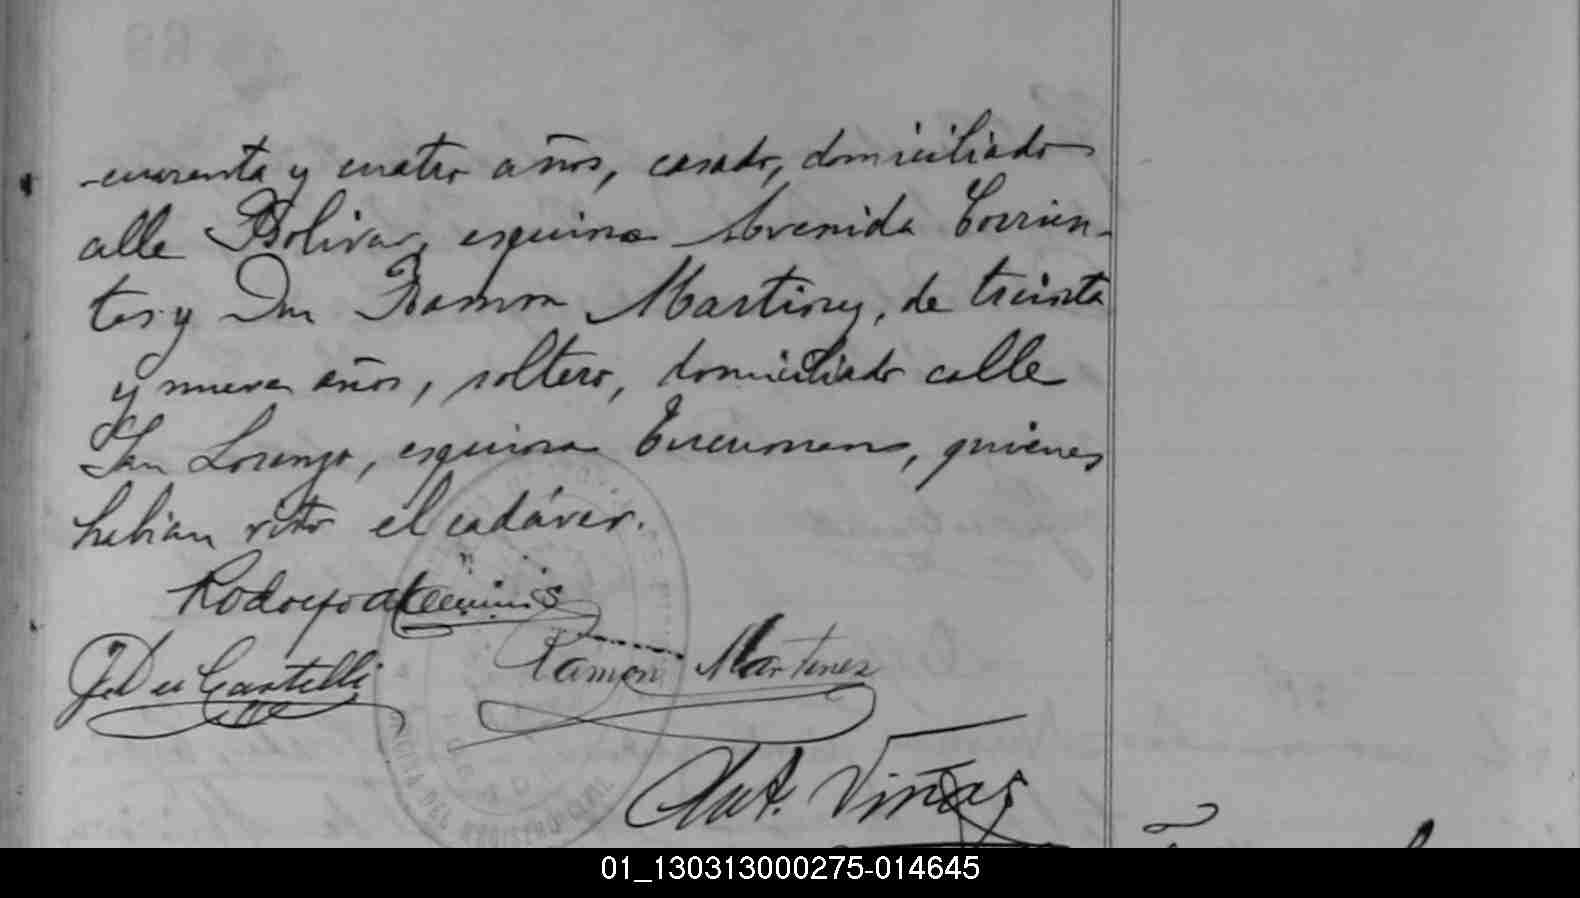 cuarenta y cuatro años, casado, domiciliado
calle Bolivar, esquina Avenida Corrien-
tes y Don Ramon Martinez, de treinta
y nueve años, soltero, domiciliado calle
San Lorenzo, esquina Tucuman, quienes
habian visto el cadáver.
Rodolfo
J. D. Castelli
Ramon Martinez
Ant. Viñas
DEL REGISTRO CIVIL
01_130313000275-014645